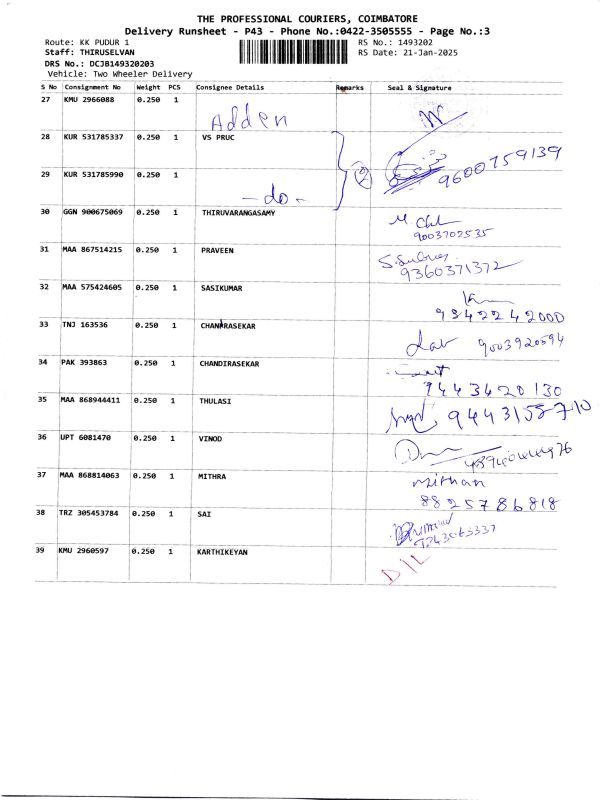 THE PROFESSIONAL COURIERS, COIMBATORE
Delivery Runsheet - P43 - Phone No.:0422-3505555 - Page No.:3
Route: KK PUDUR 1 RS No.: 1493202
Staff: THIRUSELVAN RS Date: 21-Jan-2025
DRS No.: DCJB149320203
Vehicle: Two Wheeler Delivery
S No Consignment No Weight PCS Consignee Details Remarks Seal & Signature
27 KMU 2966088 0.250 1
Adden
28 KUR 531785337 0.250 1 VS PRUC
29 KUR 531785990 0.250 1 2 9600759139
-do-
30 GGN 900675069 0.250 1 THIRUVARANGASAMY
9003702535
31 MAA 867514215 0.250 1 PRAVEEN
9360371372
32 MAA 575424605 0.250 1 SASIKUMAR
9842242000
33 TNJ 163536 0.250 1 CHANDRASEKAR
9003920594
34 PAK 393863 0.250 1 CHANDIRASEKAR
9443420130
35 MAA 868944411 0.250 1 THULASI
9443158710
36 UPT 6081470 0.250 1 VINOD
37 MAA 868814063 0.250 1 MITHRA Mithan
8825786818
38 TRZ 305453784 0.250 1 SAI
39 KMU 2960597 0.250 1 KARTHIKEYAN
D/L